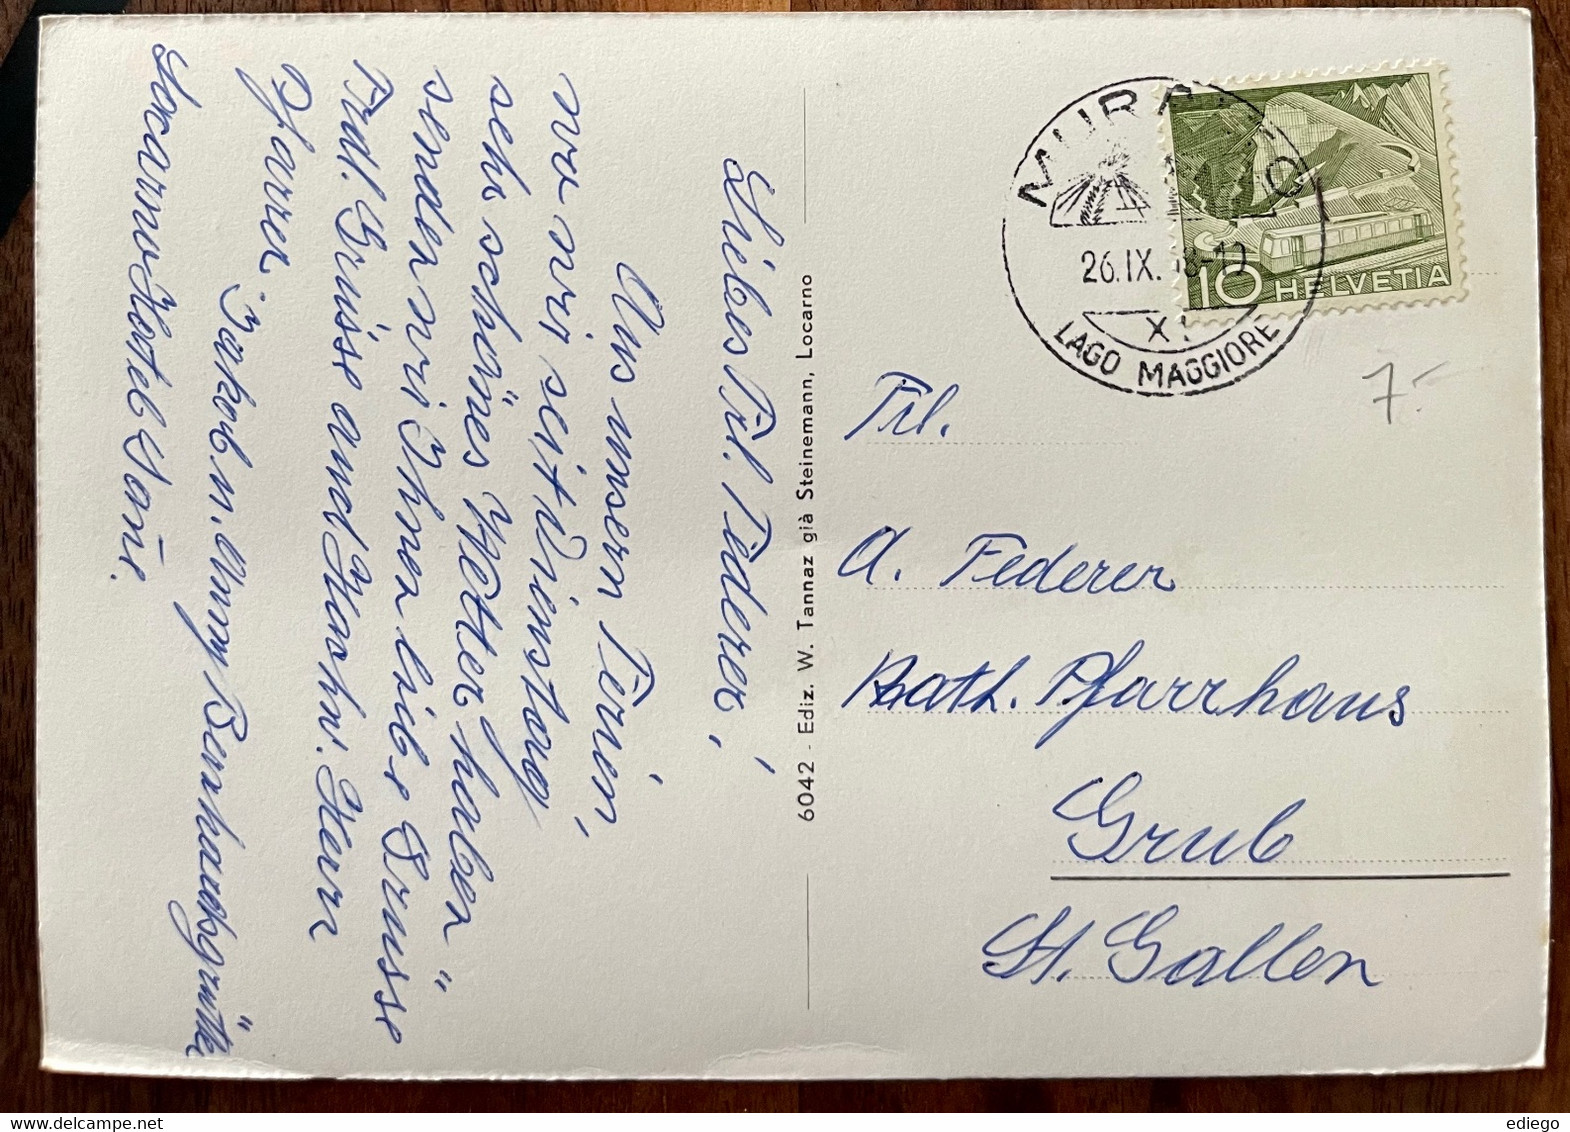 Liebes Frl. Federer,
Aus unsern Ferien,
wo wir seit Dienstag
sehr schönes Wetter haben
senden wir Ihnen liebe Grüsse
Frdl. Grüsse auch Hochw. Herr
Pfarrer
Jakob u. Anny
Locarno Hotel
6042 - Ediz. W. Tannaz già Steinemann, Locarno
26.IX.
LAGO MAGGIORE
10 HELVETIA
7.-
Frl.
A. Federer
Kath. Pfarrhaus
Grub
St. Gallen
ediego